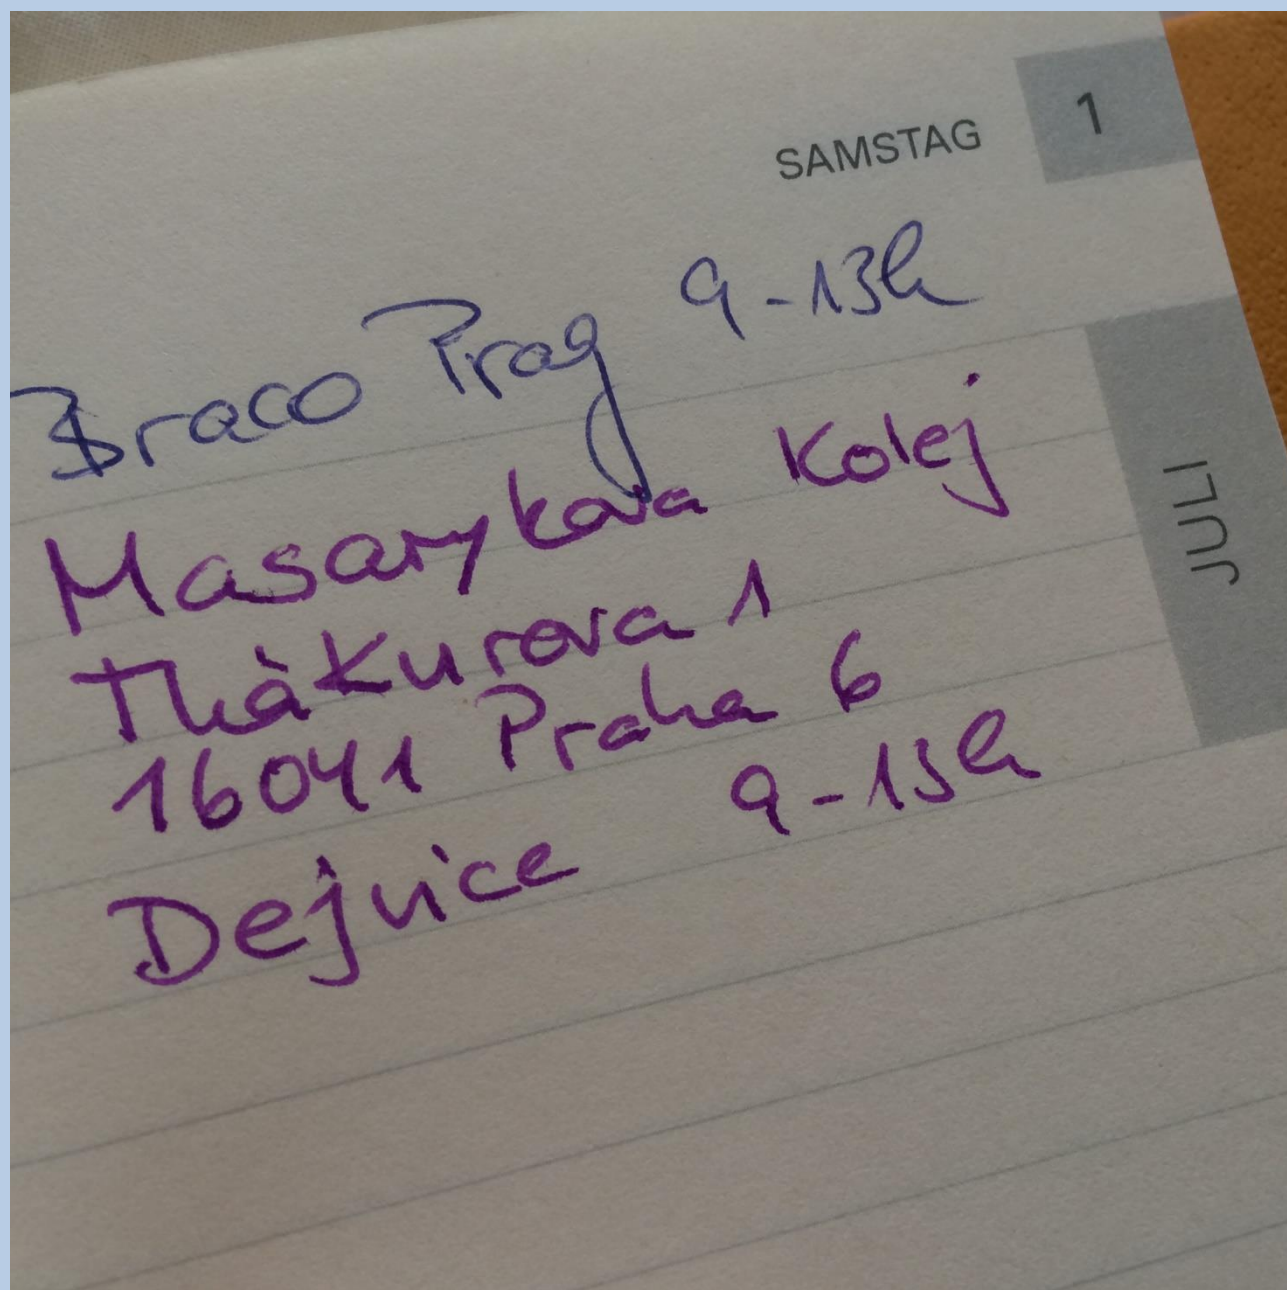 SAMSTAG 1
Braco Prag 9-13h
Masarykova Kolej
Thàkurova 1
16041 Praha 6
Dejvice 9-13h
JULI